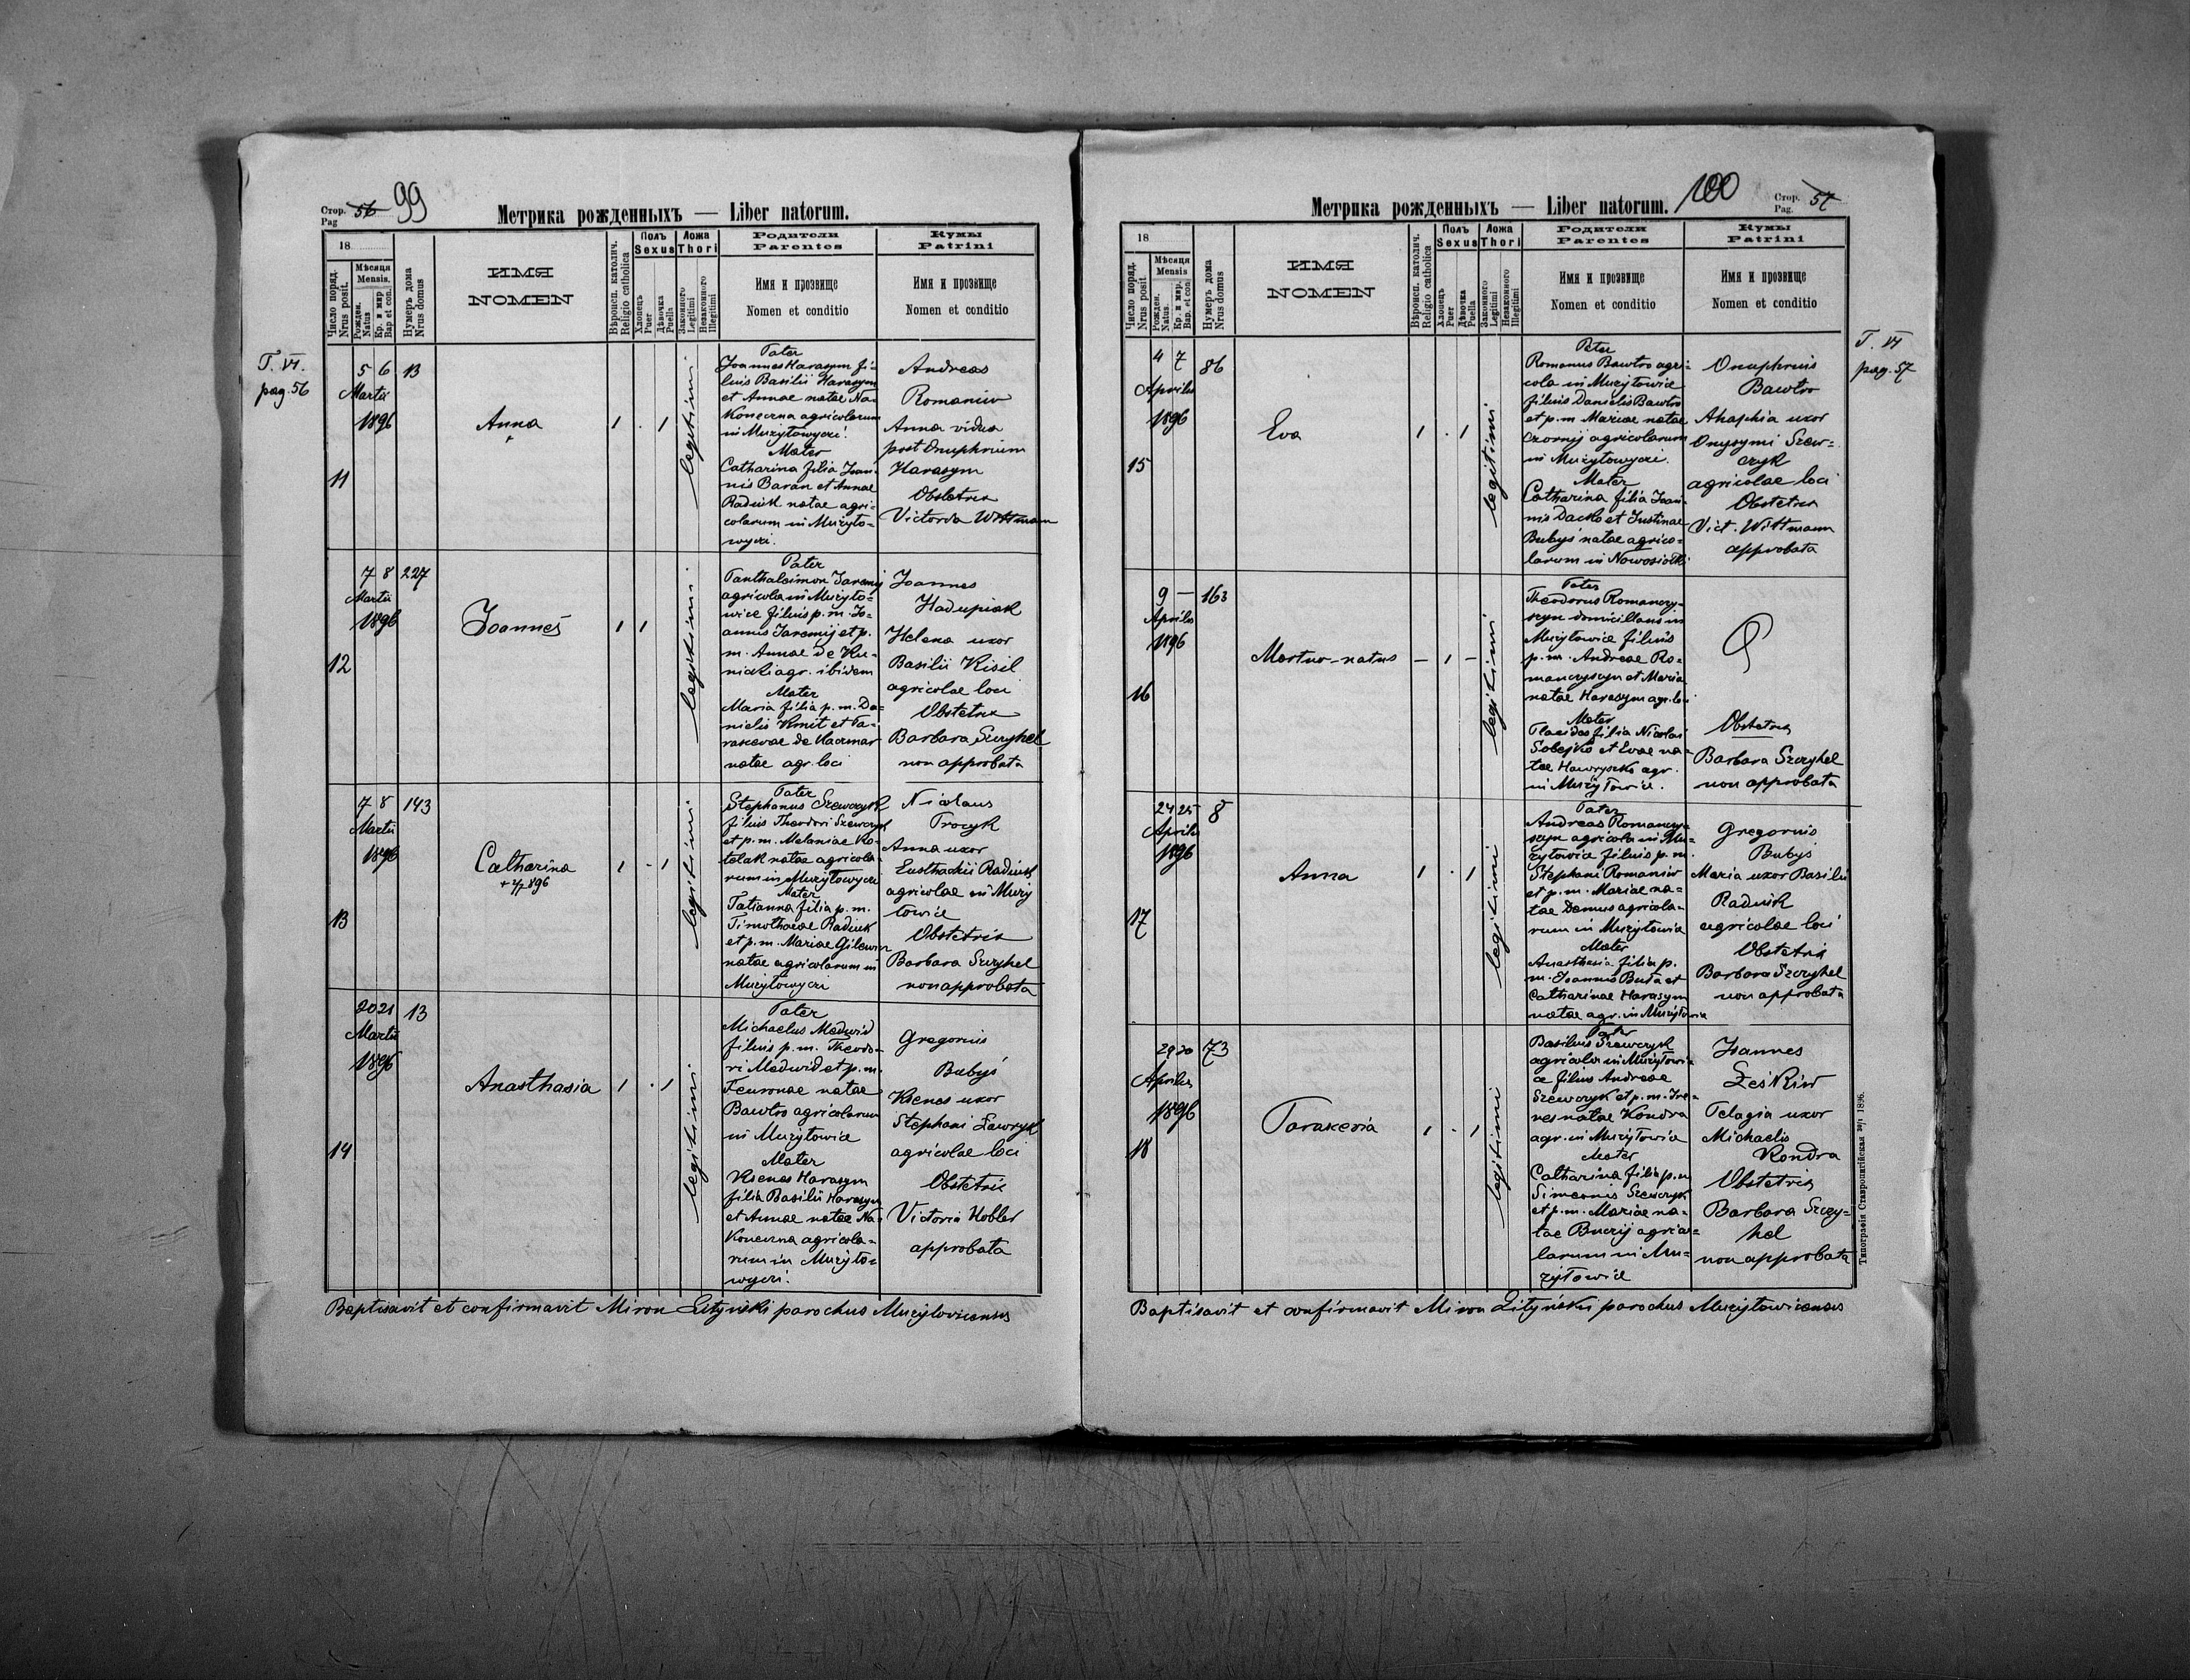 Стор. 56 99
Pag
Метрика рожденныхъ — Liber natorum.
18
Число поряд.
Nrus posit.
Мѣсяця
Mensis.
Рожден.
Natus
Кр. и мир
Bap. et con.
Нумеръ дома
Nrus domus
ИМЯ
NOMEN
Вѣроисп. католич.
Religio catholica
Полъ
Sexus
Хлопець
Puer
Дѣвочка
Puella
Ложа
Thori
Законного
Legitimi
Незаконного
Illegitimi
Родители
Parentes
Имя и прозвище
Nomen et conditio
Кумы
Patrini
Имя и прозвище
Nomen et conditio
T. VI.
pag. 56
11
5 6
Martii
1896
13
Anna
1 . 1
legitimi
Pater
Joannes Harasym fi-
lius Basilii Harasym
et Annae natae Na-
Koneczna agricolarum
in Muzytowyczi.
Mater
Catharina filia Joan-
nis Baran et Annae
Radiuk natae agri-
colarum in Muzyto-
wyczi.
Andreas
Romaniw
Anna vidua
post Onuphrium
Harasym
Obstetrix
Victoria Wittmann
12
7 8
Martii
1896
227
Joannes
1 1
legitimi
Pater
Panthaleimon Jaremij
agricola in Muzyto-
wice filius p. m. Jo-
annis Jaremij et p.
m. Annae de Ku-
nicki agr. ibidem
Mater
Maria filia p. m. Da-
nielis Kmit et Pa-
rascevae de Kaczmar
natae agr. loci
Joannes
Hadupiak
Helena uxor
Basilii Kisil
agricolae loci
Obstetrix
Barbara Szczyhel
non approbata
13
7 8
Martii
1896
143
Catharina
1 . 1
legitimi
Pater
Stephanus Szewczyk
filius Theodori Szewczyk
et p. m. Melaniae Ko-
telak natae agricola-
rum in Muzytowyczi
Mater
Tatianna filia p. m.
Timothaeae Radiuk
et p. m. Mariae Gilewicz
natae agricolarum in
Muzytowyczi
Nicolaus
Trocyk
Anna uxor
Eusthachii Radiuk
agricolae in Muzy
towice
Obstetrix
Barbara Szczyhel
non approbata
14
20 21
Martii
1896
13
Anasthasia
1 . 1
legitimi
Pater
Michaelus Medwid
filius p. m. Theodo-
ri Medwid et p. m.
Feuronae natae
Bawtro agricolarum
in Muzytowice
Mater
Ksenes Harasym
filia Basilii Harasym
et Annae natae Na-
Koneczna agricola-
rum in Muzyto-
wyczi.
Gregorius
Bubyś
Ksenes uxor
Stephani Ławryk
agricolae loci
Obstetrix
Victoria Hobler
approbata
Baptisavit et confirmavit Miron Lityński parochus Muzyłovicensis
Метрика рожденныхъ — Liber natorum.
100 Стор. 57
Pag.
18
Число поряд.
Nrus posit.
Мѣсяця
Mensis
Рожден.
Natus.
Кр. и мир.
Bap. et con.
Нумеръ дома
Nrus domus
ИМЯ
NOMEN
Вѣроисп. католич.
Religio catholica
Полъ
Sexus
Хлопець
Puer
Дѣвочка
Puella
Ложа
Thori
Законного
Legitimi
Незаконного
Illegitimi
Родители
Parentes
Имя и прозвище
Nomen et conditio
Кумы
Patrini
Имя и прозвище
Nomen et conditio
T. VI
pag. 57
15
4 7
Aprilis
1896
86
Eva
1 . 1
legitimi
Pater
Romanus Bawtro agri-
cola in Muzytowice
filius Danielis Bawtro
et p. m Mariae natae
Czornij agricolarum
in Muzytowyczi.
Mater
Catharina filia Joan-
nis Dacko et Justinae
Bubyś natae agrico-
larum in Nowosiołki
Onuphrius
Bawtro
Ahaphia uxor
Onysymi Szew-
czyk
agricolae loci
Obstetrix
Vict. Wittmann
approbata
16
9 —
Aprilis
1896
163
Mortuo-natus
— 1 —
legitimi
Pater
Theodorus Romanczy-
szyn domicilians in
Muzytowice filius
p. m. Andreae Ro-
manczyszyn et Maria
natae Harasym agr. loci
Mater
Placidas filia Nicolai
Sobejko et Evae na-
tae Hawryszko agr.
in Muzytowice.
Obstetrix
Barbara Szczyhel
non approbata
17
24 25
Aprilis
1896
8
Anna
1 . 1
legitimi
Pater
Andreas Romanczy-
szyn agricola in Mu-
zytowice filius p. m.
Stephani Romaniw
et p. m. Mariae na-
tae Demus agricola-
rum in Muzytowice
Mater
Anasthasia filia p.
m. Joannis Buta et
Catharinae Harasym
natae agr. in Muzytowice
Gregorius
Bubyś
Maria uxor Basilii
Radiuk
agricolae loci
Obstetrix
Barbara Szczyhel
non approbata
18
29 30
Aprilis
1896
73
Parascevia
1 . 1
legitimi
Pater
Basilius Szewczyk
agricola in Muzytowi-
ce filius Andreae
Szewczyk et p. m. Ire-
nes natae Kondra
agr. in Muzytowice
Mater
Catharina filia p. m
Simeonis Szewczyk
et p. m. Mariae na-
tae Buczij agrico-
larum in Mu-
zytowice
Joannes
Łeśkiw
Pelagia uxor
Michaelis
Kondra
Obstetrix
Barbara Szczy-
hel
non approbata
Baptisavit et confirmavit Miron Lityński parochus Muzyłowicensis
Типографія Ставропигійская зар. 1896.